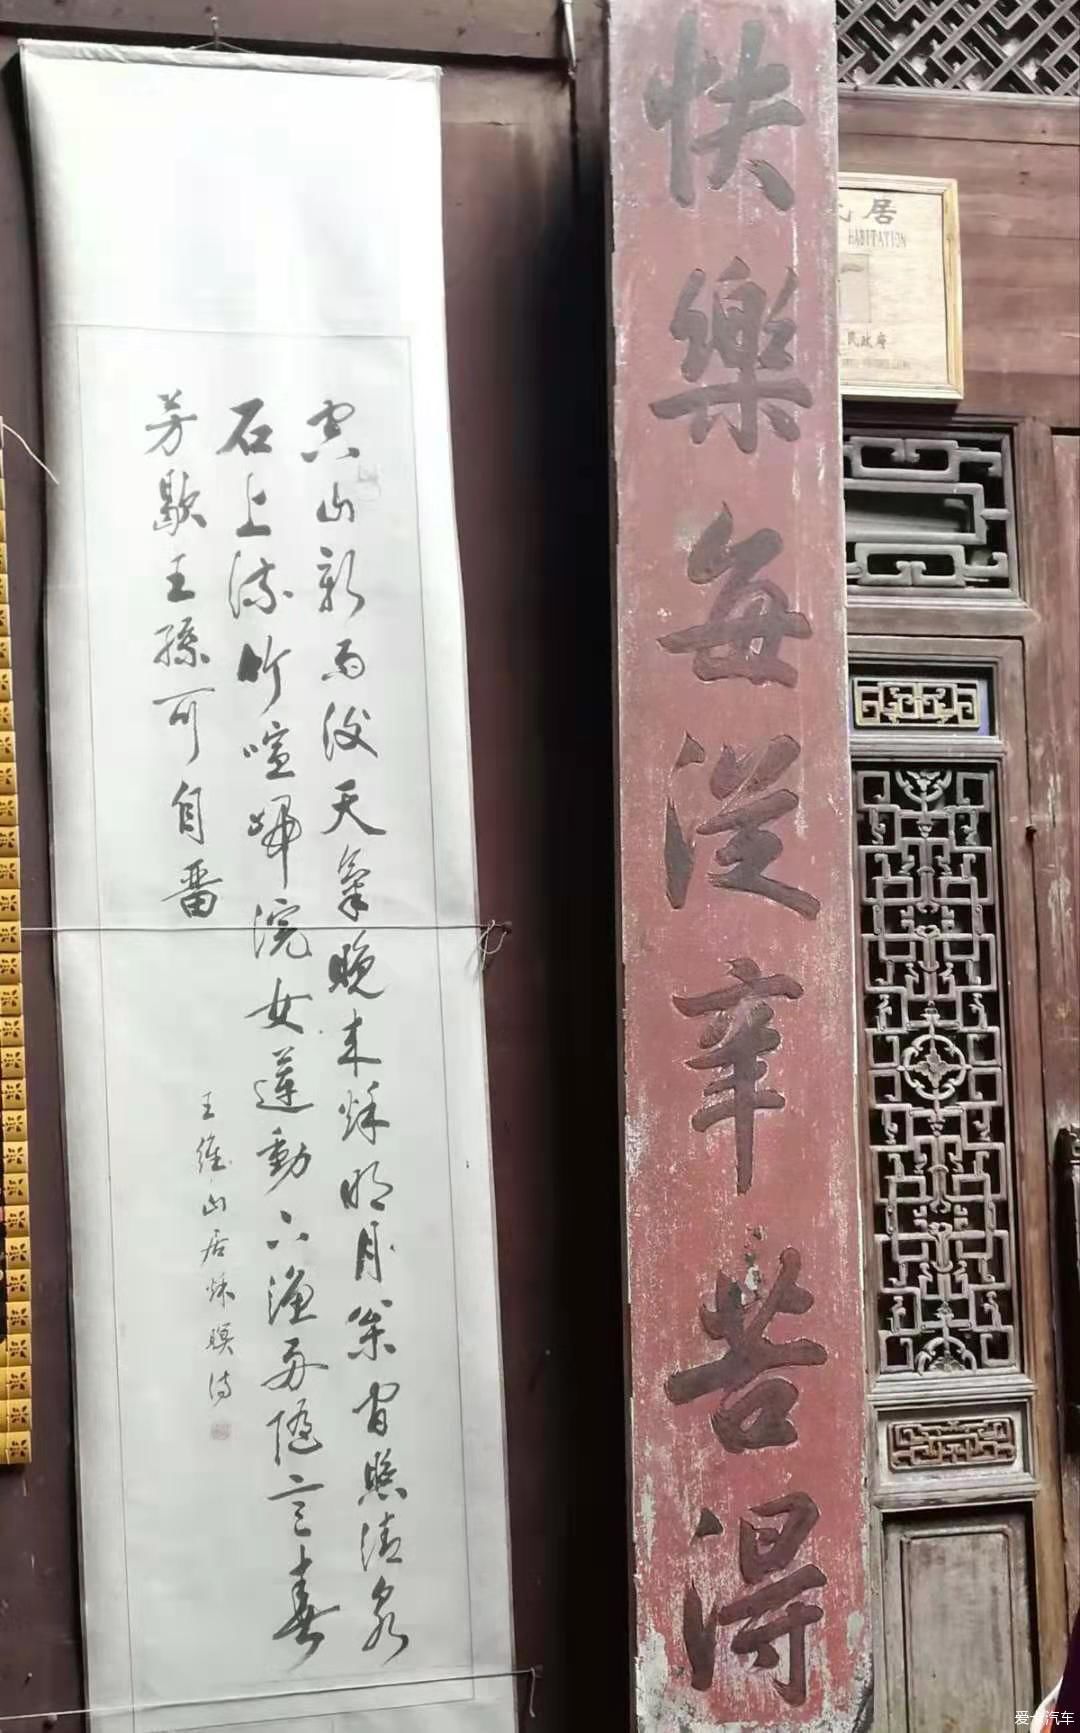 居
HABITATION
民政府
快樂每從辛苦得
空山新雨後天氣晚来秋明月松間照清泉
石上流竹喧歸浣女蓮動下漁舟随意春
芳歇王孫可自留
王維山居秋暝诗
爱卡汽车